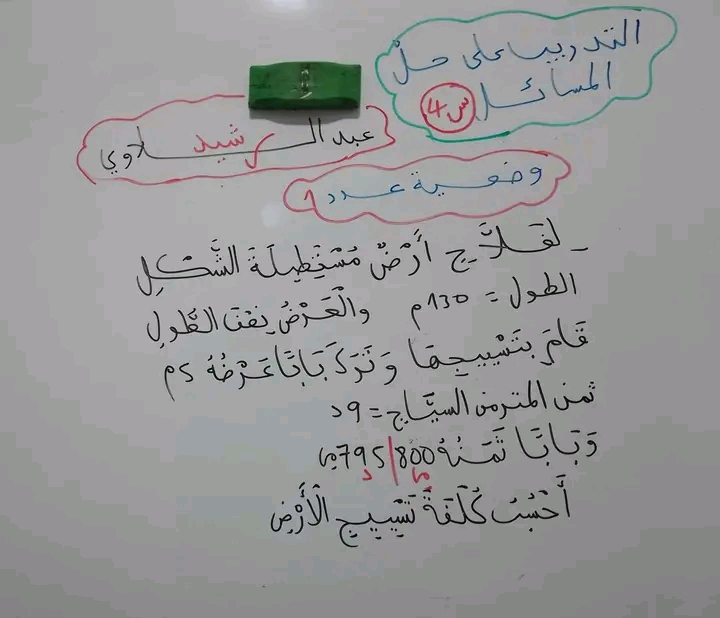 التدريب على حل
المسائل س4
عبد الرشيد سلاوي
وضعية عدد 1
- لفلاّحٍ أَرْضٌ مُسْتَطِيلَةَ الشَّكْلِ
الطول = 130م والْعَرْضُ نِصْفَ الطُّولِ
قَامَ بِتَسْيِيجِهَا وَتَرَكَ بَابًا عَرْضُهُ 5م
ثمن المتر من السيَّاج = 9د
وَبَابًا ثَمَنُهُ 795/800 مي
أَحْسُبُ كُلْفَةَ تَسْيِيجِ الْأَرْضِ